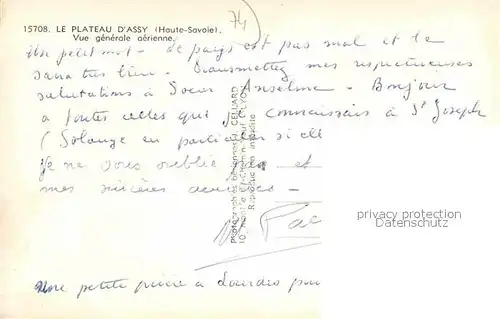 15708. LE PLATEAU D'ASSY (Haute-Savoie).
Vue générale aérienne.
74
Un petit mot - le pays est pas mal et le
sana très bien. Transmettez mes respectueuses
salutations à Soeur Anselme - Bonjour
a toutes celles qui connaissais à St Joseph
(Solange en particulier si elle
Je ne vous oublie pas et
mes sincères amitiés -
Une petite prière a Lourdes pour
Photographies aériennes J. CELLARD
Reproduction interdite
privacy protection
Datenschutz